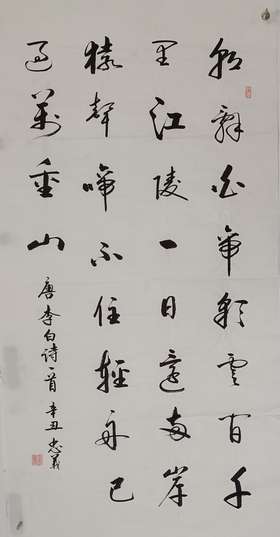 朝辭白帝彩雲間千
里江陵一日還兩岸
猿聲啼不住輕舟已
過萬重山
唐李白詩一首 辛丑 忠義